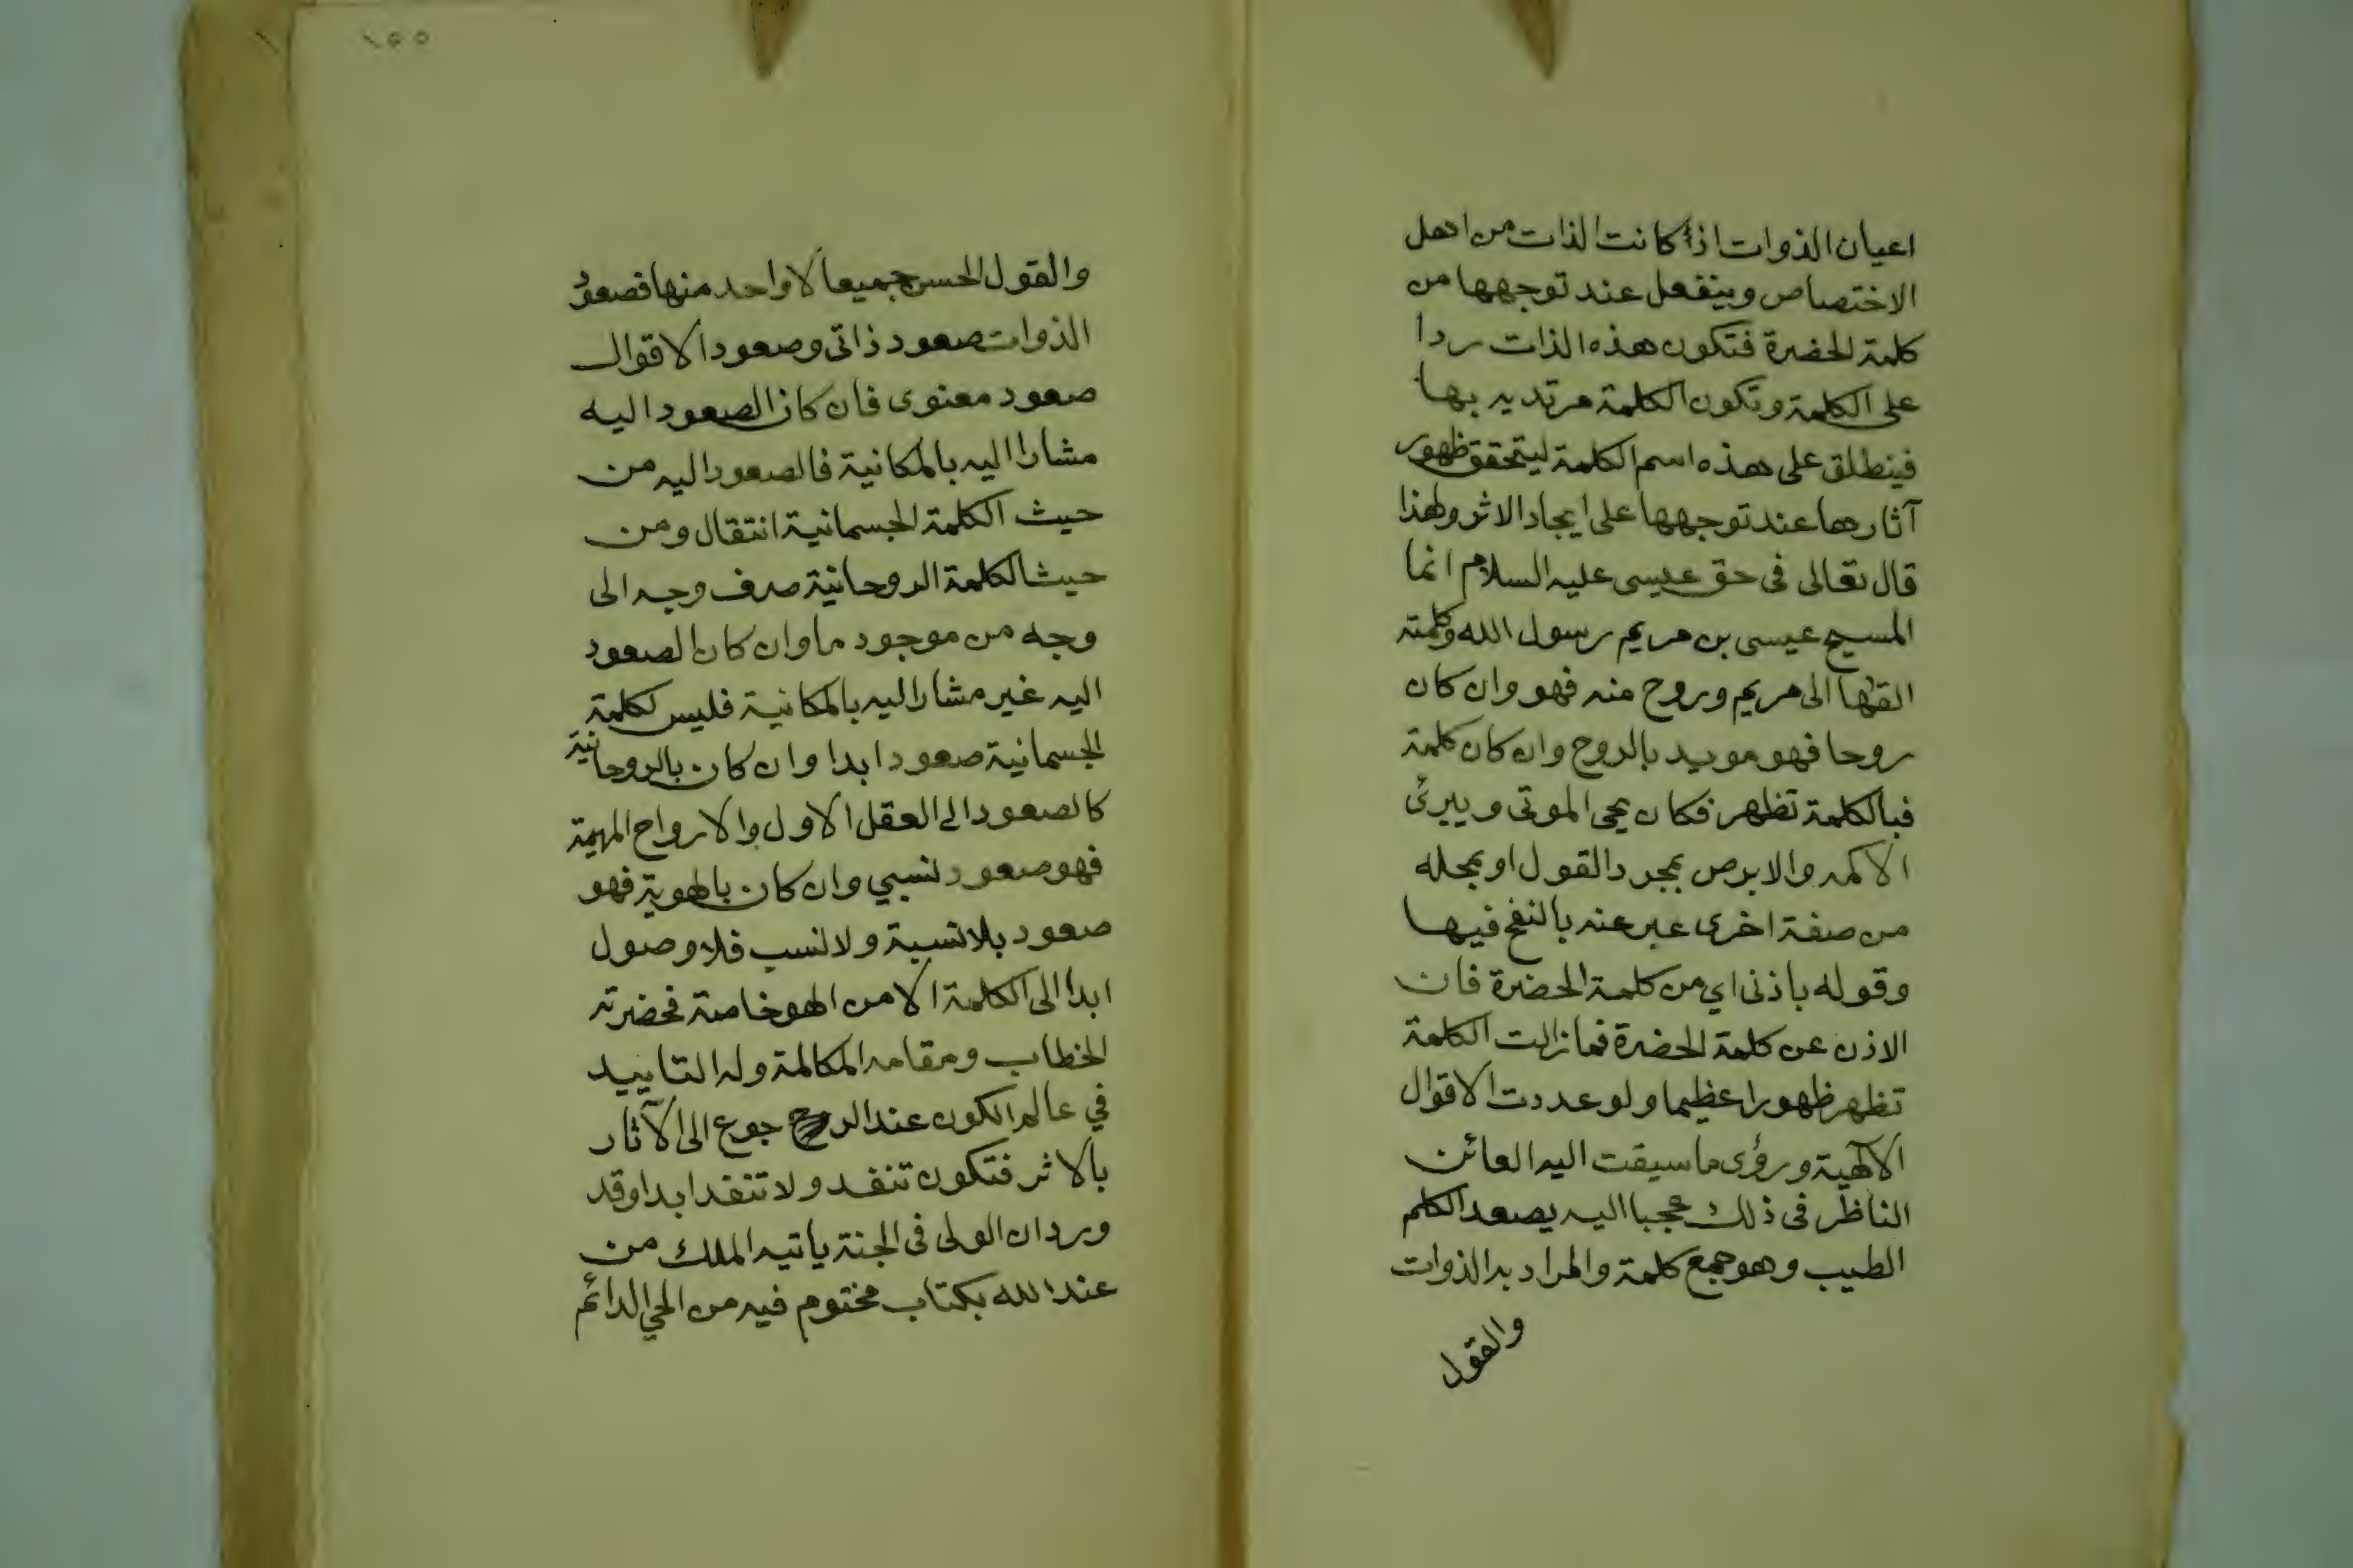 اعيان الذوات اذا كانت الذات من اهل
الاختصاص وينفعل عند توجهها من
كلمة الحضرة فتكون هذه الذات ردا
على الكلمة وتكون الكلمة مرتديه بها
فينطلق على هذه اسم الكلمة ليتحقق ظهور
آثارها عند توجهها على ايجاد الاثر ولهذا
قال تعالى فى حق عيسى عليه السلام انما
المسيح عيسى بن مريم رسول الله وكلمته
القها الى مريم وروح منه فهو وان كان
روحا فهو مويد بالروح وان كان كلمة
فبالكلمة تظهر فكان يحى الموتى ويبرئ
الاكمه والابرص بمجرد القول او بمجله
من صفة اخرى عبر عنه بالنفخ فيها
وقوله باذنى اي من كلمة الحضرة فان
الاذن عن كلمة الحضرة فما زالت الكلمة
تظهر ظهورا عظيما ولو عددت الاقوال
الالهية ورؤى ما سيقت اليه العائن
الناظر فى ذلك عجبا اليه يصعد الكلم
الطيب وهو جمع كلمة والمراد به الذوات
والقول
١٥٥
والقول الحسن جميعا لا واحد منها فصعود
الذوات صعود ذاتى وصعود الاقوال
صعود معنوى فان كان الصعود اليه
مشارا اليه بالمكانية فالصعود اليه من
حيث الكلمة الجسمانية انتقال ومن
حيث الكلمة الروحانية صرف وجه الى
وجه من موجود ما وان كان الصعود
اليه غير مشار اليه بالمكانية فليس لكلمة
الجسمانية صعود ابدا وان كان بالروحانية
كالصعود الى العقل الاول والارواح المهيمة
فهو صعود نسبي وان كان بالهوية فهو
صعود بلا نسبة ولا نسب فلا وصول
ابدا الى الكلمة الا من الهو خاصة فحضرته
الخطاب ومقامه المكالمة وله التاييد
في عالم الكون عند الرجوع الى الآثار
بالاثر فتكون تنفد ولا تنفد ابدا وقد
ورد ان الولى فى الجنة ياتيه الملك من
عند الله بكتاب مختوم فيه من الحي الدائم